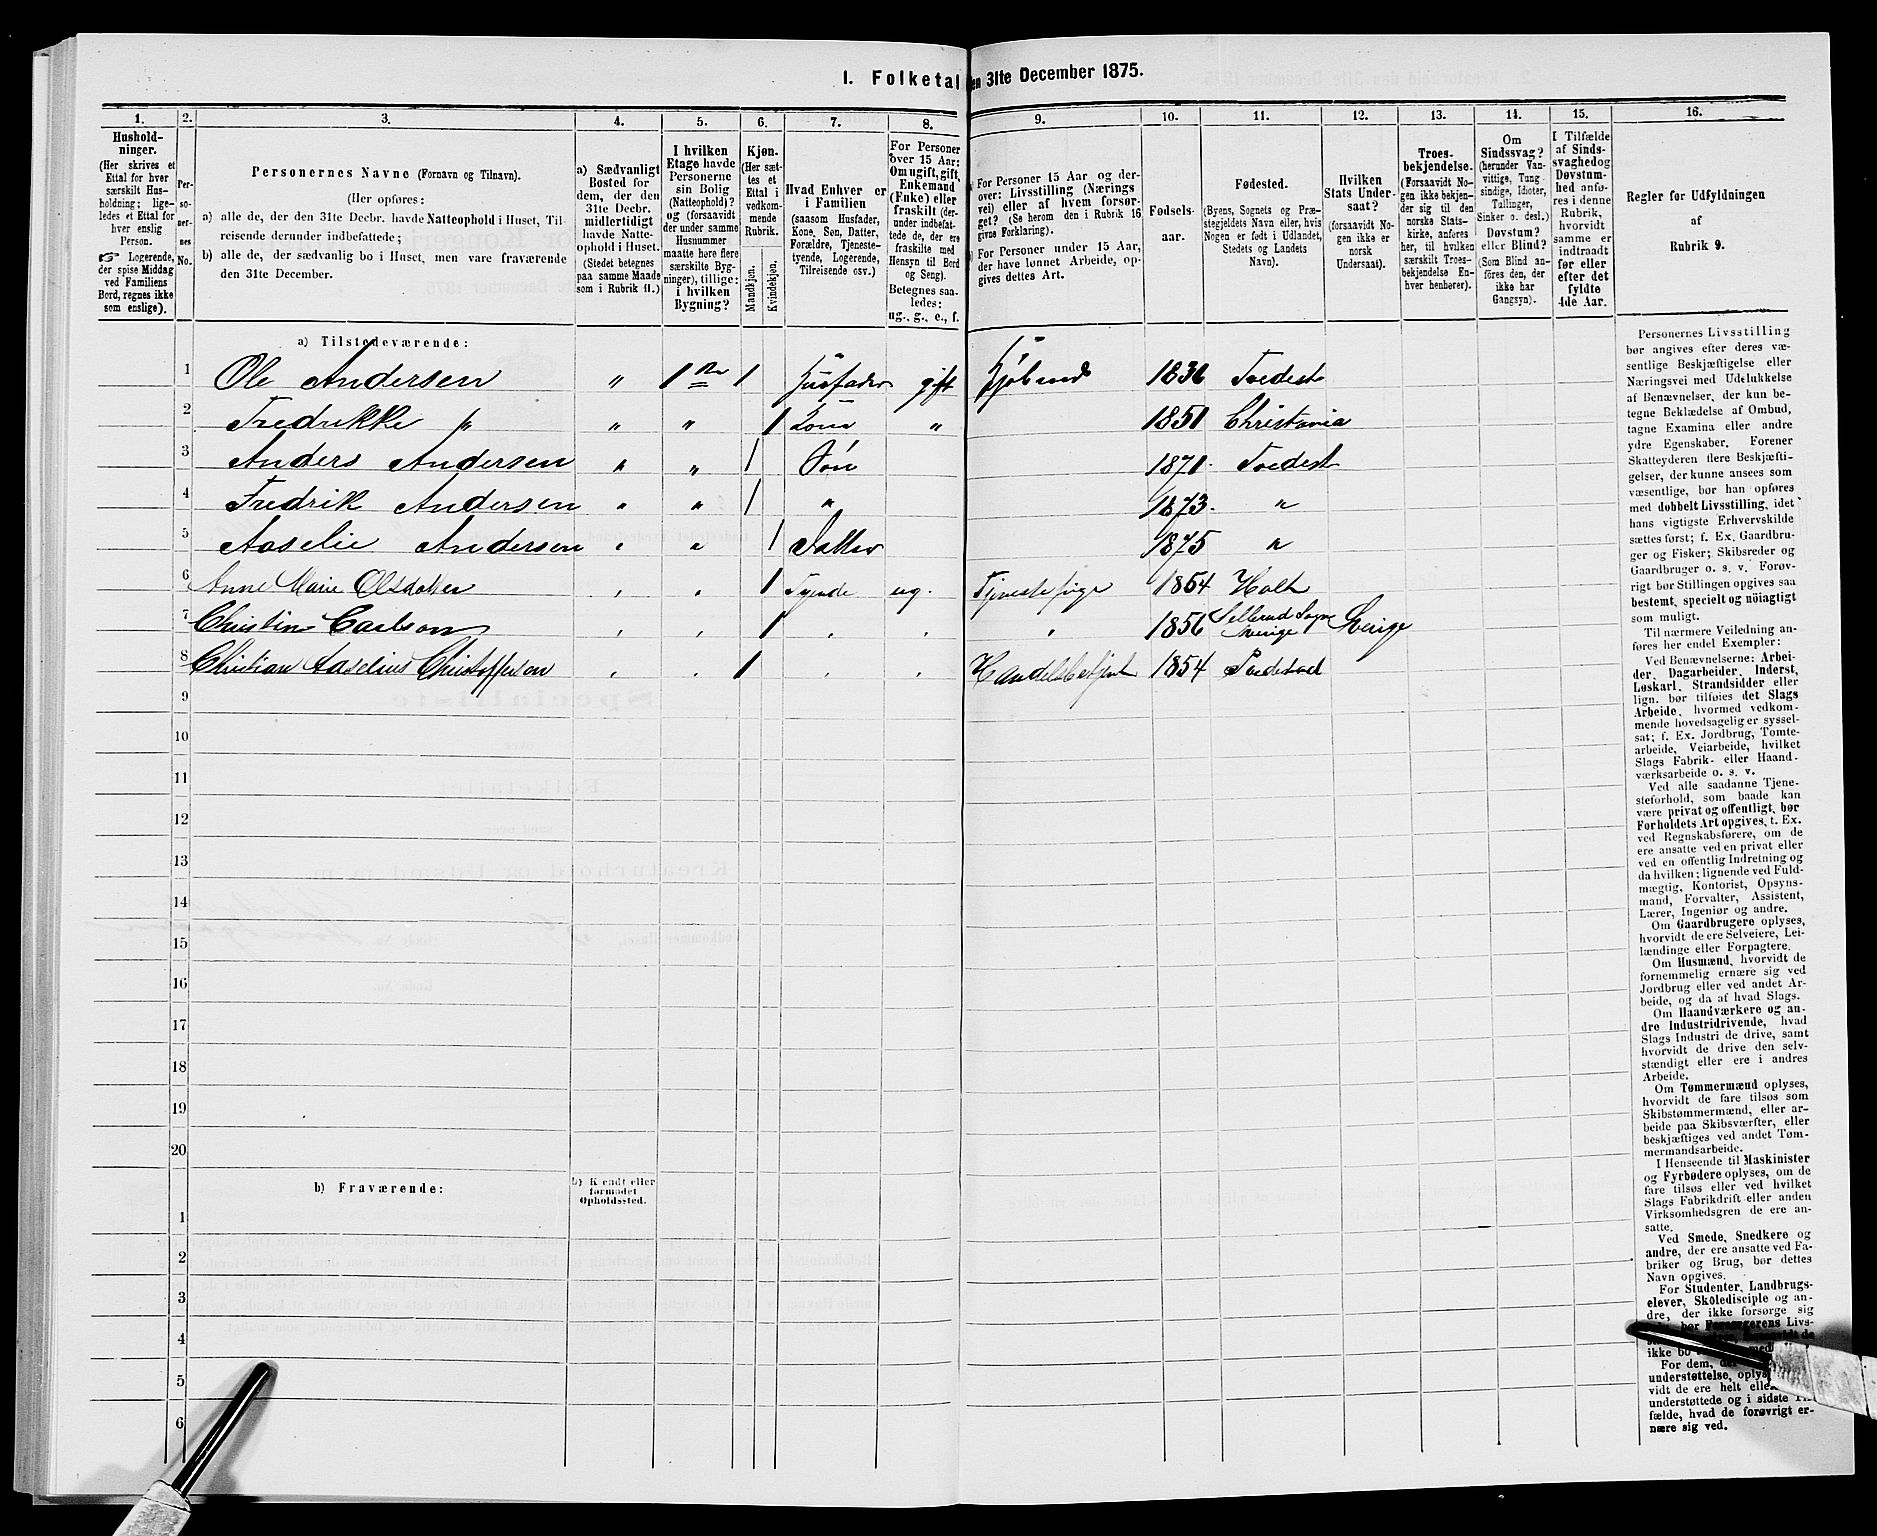 I. Folketal den 31te December 1875.
1. 2. 3. 4. 5. 6. 7. 8. 9. 10. 11. 12. 13. 14. 15. 16.
Hushold-
ninger.
(Her skrives et
Ettal for hver
særskilt Hus-
holdning; lige-
ledes et Ettal for
hver enslig
Person.
☞ Logerende,
der spise Middag
ved Familiens
Bord, regnes ikke
som enslige).
Per-
so-
ner-
nes
No.
Personernes Navne (Fornavn og Tilnavn).
(Her opføres:
a) alle de, der den 31te Decbr. havde Natteophold i Huset, Til-
reisende derunder indbefattede;
b) alle de, der sædvanlig bo i Huset, men vare fraværende
den 31te December.
a) Sædvanligt
Bosted for
dem, der den
31te Decbr.
midlertidigt
havde Natte-
ophold i Huset.
(Stedet betegnes
paa samme Maade
som i Rubrik 11.)
I hvilken
Etage havde
Personerne
sin Bolig
(Natteophold)?
og (forsaavidt
der under samme
Husnummer
maatte høre flere
særskilte Byg-
ninger), tillige:
i hvilken
Bygning?
Kjøn.
(Her sæt-
tes et
Ettal i
vedkom-
mende
Rubrik.
Mandkjøn.
Kvindekjøn.
Hvad Enhver er
i Familien
(saasom Husfader,
Kone, Søn, Datter,
Forældre, Tjeneste-
tyende, Logerende,
Tilreisende osv.)
For Personer
over 15 Aar:
Om ugift, gift,
Enkemand
(Enke) eller
fraskilt (der-
under indbefat-
tede de, der ere
fraskilte med
Hensyn til Bord
og Seng).
Betegnes saa-
ledes:
ug., g., e., f.
For Personer 15 Aar og der-
over: Livsstilling (Nærings
vei) eller af hvem forsør-
get? (Se herom den i Rubrik 16
givne Forklaring).
For Personer under 15 Aar,
der have lønnet Arbeide, op-
gives dettes Art.
Fødsels-
aar.
Fødested.
(Byens, Sognets og Præ-
stegjeldets Navn eller, hvis
Nogen er født i Udlandet,
Stedets og Landets
Navn).
Hvilken
Stats Under-
saat?
(forsaavidt No-
gen ikke er
norsk
Undersaat).
Troes-
bekjendelse.
(Forsaavidt No-
gen ikke beken-
der sig til den
norske Stats-
kirke, anføres
her, til hvilken
særskilt Troes-
bekjendelse En-
hver henhører).
Om
Sindssvag?
(herunder Van-
vittige, Tung-
sindige, Idioter,
Tullinger,
Sinker o. desl.)
Døvstum?
eller Blind?
(Som Blind an-
føres den, der
ikke har
Gangsyn).
I Tilfælde
af Sinds-
svaghed og
Døvstum-
hed anfø-
res i denne
Rubrik,
hvorvidt
samme er
indtraadt
før eller
efter det
fyldte
4de Aar.
Regler før Udfyldningen
af
Rubrik 9.
a) Tilstedeværende:
1 Ole Andersen " 1ste 1 Husfader gift 1836 Tvedest
2 Fredrikke " " " 1 Kone " 1851 Christania
3 Anders Andersen " " 1 Søn 1871. Tvedest
4 Fredrik Andersen " " 1 " 1873. "
5 Aaselie Andersen " " 1 Datter 1875 "
6 Anne Marie Olsdatter " " 1 Tyende ug. Tjenestepige 1854 Holt
7 Christin Carlson " " 1 " " " 1856 Sellerud Sogn Sverige Sverige
8 Christian Aaselius Christoffersen " " 1 " " Handelsbetjent 1854
9
10
11
12
13
14
15
16
17
18
19
20
b) Fraværende:
b) Kjendt eller
formodet
Opholdssted.
1
2
3
4
5
6
Personernes Livsstilling
bør angives efter deres væ-
sentlige Beskjæftigelse eller
Næringsvei med Udelukkelse
af Benævnelser, der kun be-
tegne Beklædelse af Ombud,
tagne Examina eller andre
ydre Egenskaber. Forener
Skatteyderen flere Beskjæfti-
gelser, der kunne ansees som
væsentlige, bør han opføres
med dobbelt Livsstilling, idet
hans vigtigste Erhvervskilde
sættes først; f. Ex. Gaardbru-
ger og Fisker; Skibsreder og
Gaardbruger o. s. v. Forøv-
rigt bør Stillingen opgives saa
bestemt, specielt og nöiagtigt
som muligt.
Til nærmere Veiledning an-
føres her endel Exempler:
Ved Benævnelserne: Arbei-
der, Dagarbeider, Inderst,
Løskarl, Strandsidder eller
lign. bør tilføies det Slags
Arbeide, hvormed vedkom-
mende hovedsagelig er syssel-
sat; f. Ex. Jordbrug, Tomte-
arbeide, Veiarbeide, hvilket
Slags Fabrik- eller Haand-
værksarbeide o. s. v.
Ved alle saadanne Tjene-
steforhold, som baade kan
være privat og offentligt, bør
Forholdets Art opgives, t. Ex.
ved Regnskabsførere, om de
ere ansatte ved en privat eller
ved en offentlig Indretning og
da hvilken; lignende ved Fuld-
mægtig, Kontorist, Opsyns-
mand, Forvalter, Assistent,
Lærer, Ingeniør og andre.
Om Gaardbrugere oplyses,
hvorvidt de ere Selveiere, Lei-
lændinge eller Forpagtere.
Om Husmænd, hvorvidt de
fornemmelig ernære sig ved
Jordbrug eller ved andet Ar-
beide, og da af hvad Slags.
Om Haandværkere og an-
dre Industridrivende, hvad
Slags Industri de drive, samt
hvorvidt de drive den selv-
stændigt eller ere i andres
Arbeide.
Om Tømmermænd oplyses,
hvorvidt de fare tilsøs som
Skibstømmermænd, eller ar-
beide paa Skibsværfter, eller
beskjæftiges ved andet Tøm-
mermandsarbeide.
I Henseende til Maskinister
og Fyrbødere oplyses, om de
fare tilsøs eller ved hvilket
Slags Fabrikdrift eller anden
Virksomhedsgren de ere an-
satte.
Ved Smede, Snedkere og
andre, der ere ansatte ved Fa-
briker og Brug, bør dettes
Navn opgives.
For Studenter, Landbrugs-
elever, Skoledisciple og an-
dre, der ikke forsørge sig
bør Forsørgerens Livs-
ikke bo
For dem,
understøttelse,
vidt de ere helt
understøttede og i sidste
fælde, hvad de forøvrigt er-
nære sig ved.